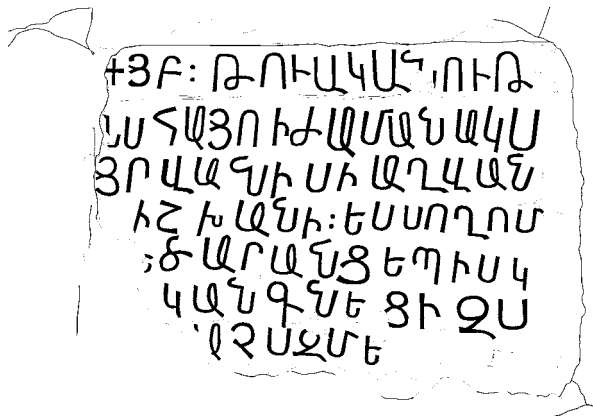 +ՅԲ: ԹՈՒԱԿԱՆՈՒԹ
ՆՍ ՀԱՅՈ Ի ԺԱՄԱՆԱԿՍ
ՅՐ ՎԱՆԻ ՍԻ ԱՂՎԱՆ
ԻՇԽԱՆԻ: ԵՍ ՍՈՂՈՄ
ԱՐԱՆՑ ԵՊԻՍԿ
ԿԱՆԳՆԵՑԻ ԶՍ